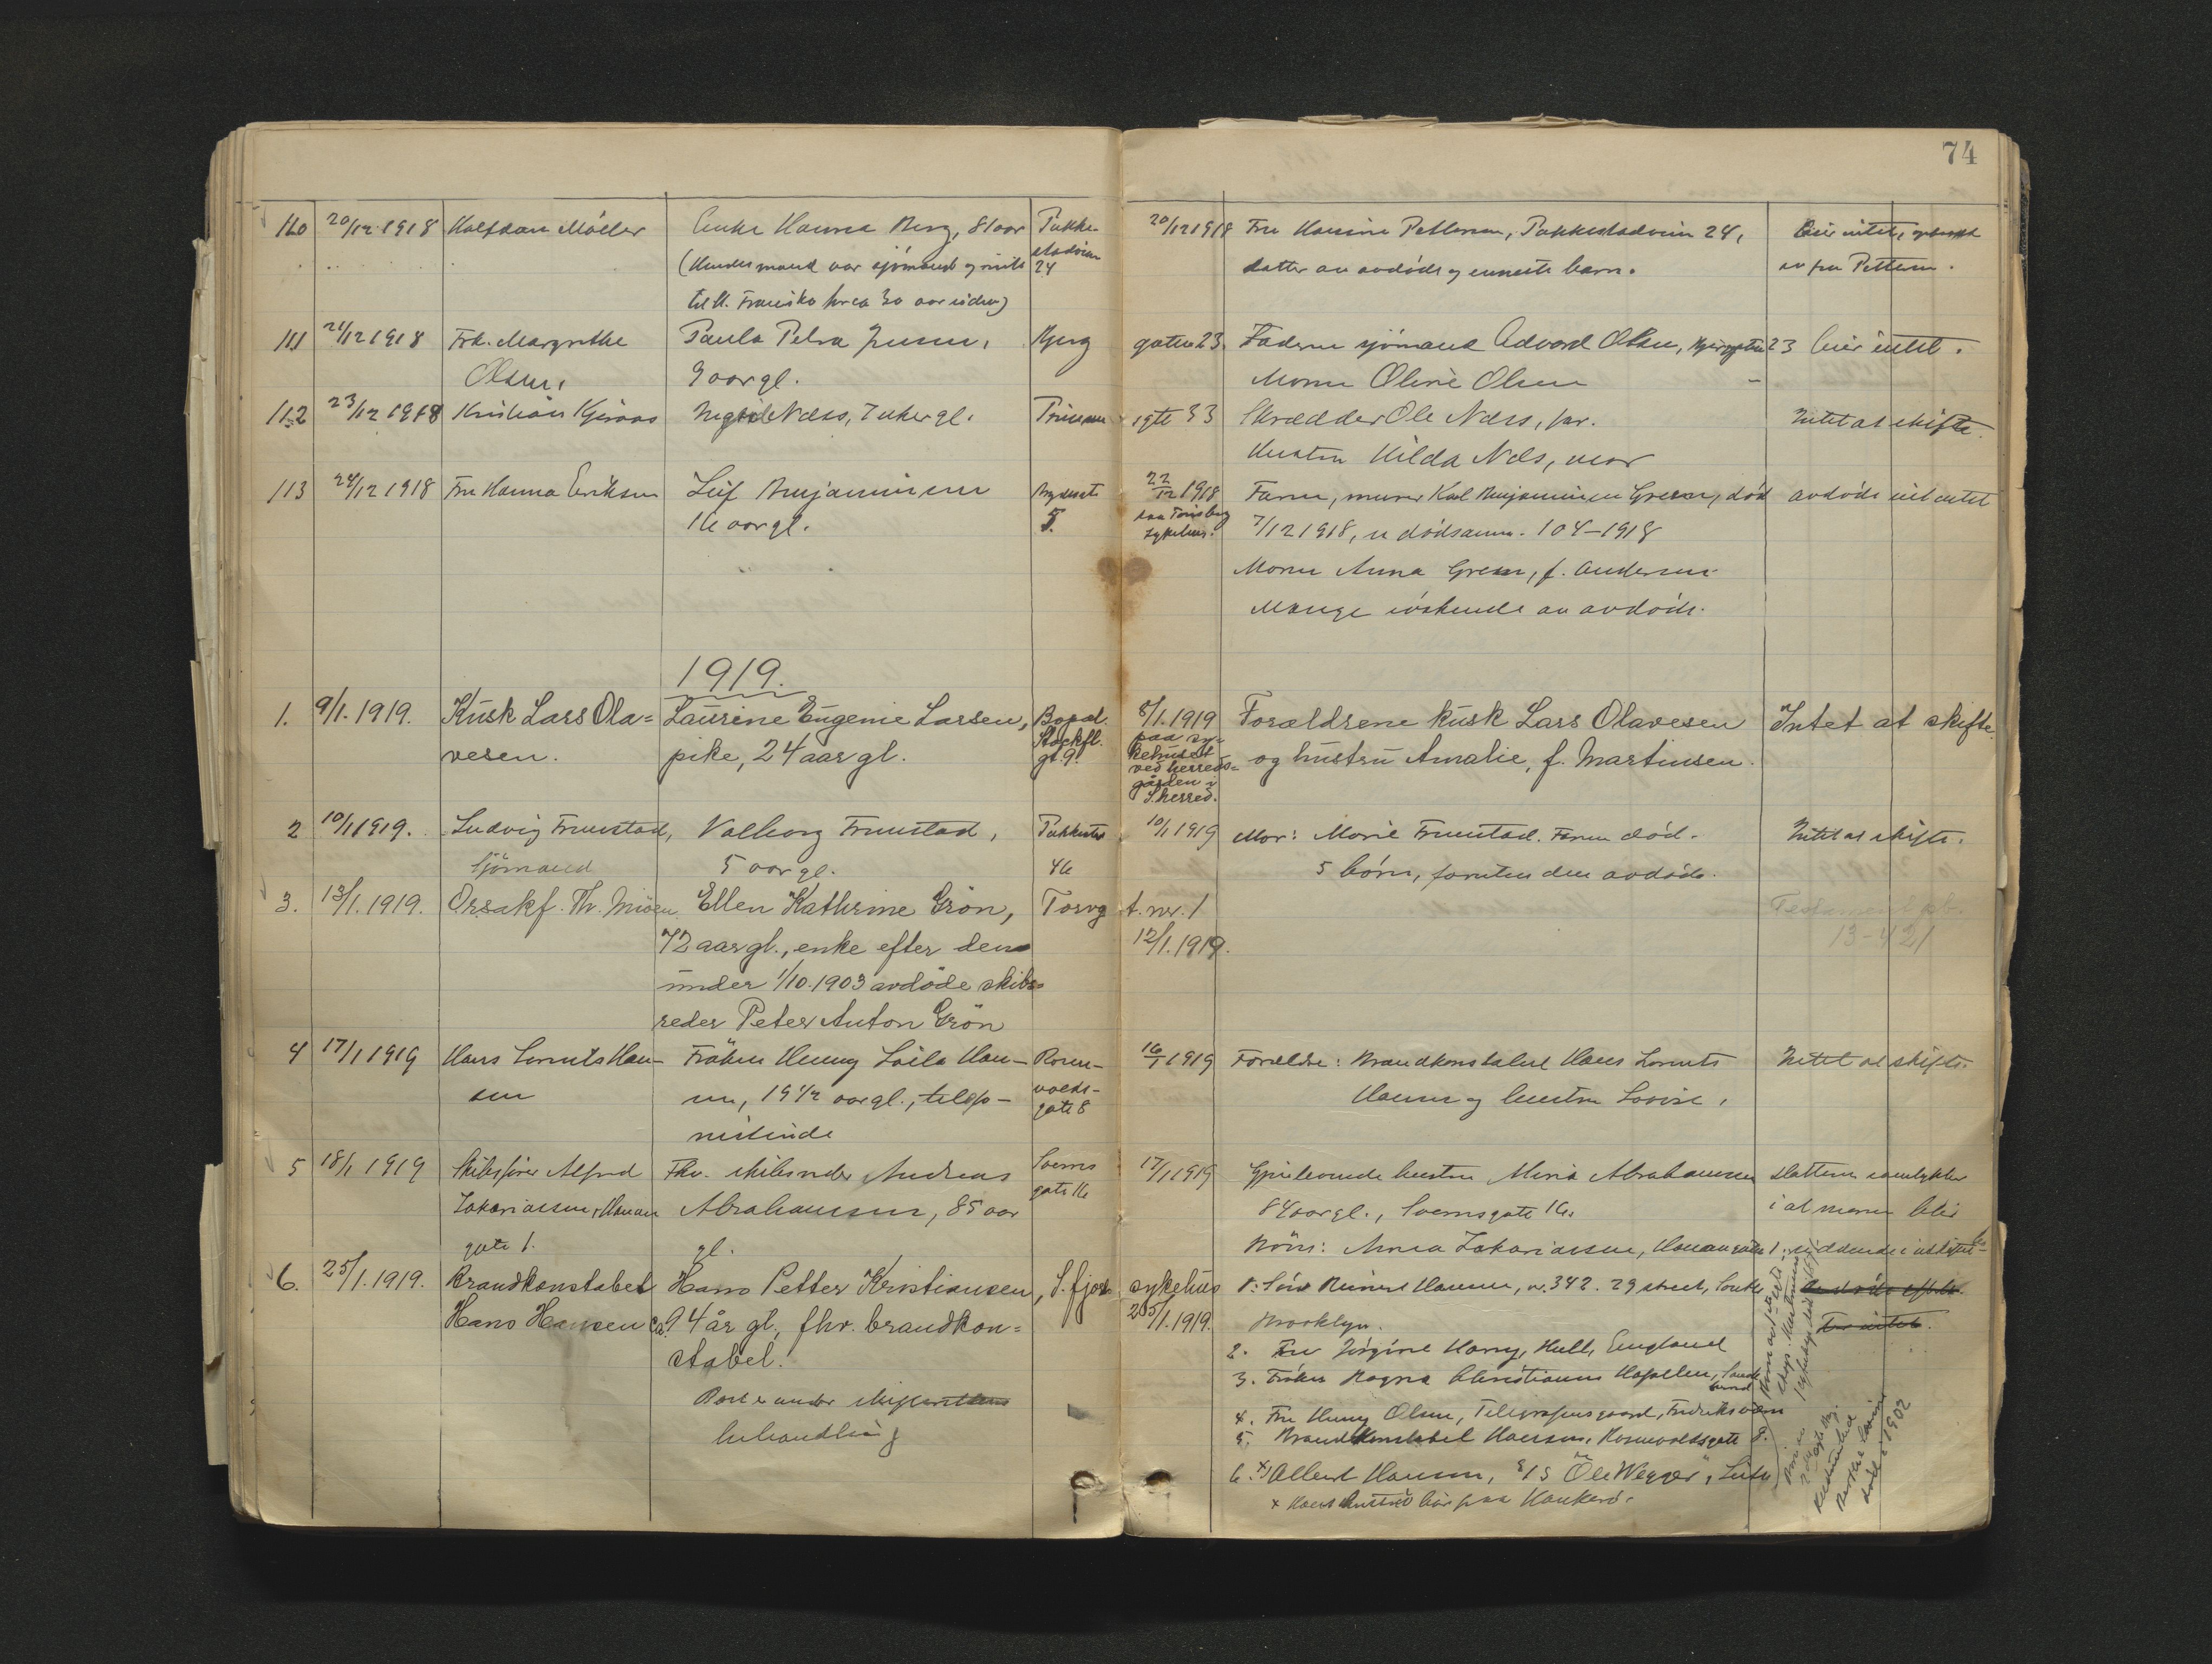 74
110 20/12 1918 Halfdan Möller Enke Hanna Berg, 81 aar Pukke- 20/12 1918 Fru Hansine Pettersen, Pukkestadveien 24, Eier intet,
(Hendes mand var sjömand og reiste stadveien 24 datter av avdöde og eneste barn. av fru Pettersen.
til St. Fransisko for ca 30 aar siden)
111 21/12 1918 Frk. Margrethe Paula Petra Jensen, Bjerg gaten 23. Faderen sjömand Edvard Olsen, Bjerggaten 23 Eier intet.
Olsen, 9 aar gl. Moren Oline Olsen
112 23/12 1918 Kristian Kjeraas Ingrid Næss, 7 uker gl. Prinsens gte 33 Skrædder Ole Næss, far. Intet at skifte.
Hustru Hilda Næs, mor
113 24/12 1918 Fru Hanna Eriksen Leif Benjaminsen 22/12 1918 Faren, murer Karl Benjaminsen Green, död avdöde eiet intet
16 aar gl. 5. paa Tönsberg sykehus. 7/12 1918, se dödsanm. 104-1918
Moren Anna Green, f. Andersen
Mange söskende av avdöde.
1919.
1. 9/1. 1919. Kusk Lars Ola= Laurine Eugenie Larsen, Bopæl. 8/1. 1919 Forældrene kusk Lars Olavesen Intet at skifte.
vesen. pike, 24 aar gl. Stockfl. gt. 9. paa sy= og hustru Amalie, f. Martinsen.
kehuset
ved herreds=
gården i
S. herred.
2 10/1 1919. Ludvig Fruestad, Valborg Fruestad, Pukkestv 10/1 1919 Mor: Marie Fruestad. Faren död. Intet at skifte.
Sjömand 5 aar gl. 46 5 börn, foruten den avdöde.
3. 13/1. 1919. Orsakf. Th. Moen Ellen Kathrine Grön, Torvg t. nr. 1 Testament
72 aar gl., enke efter den 12/1. 1919. 13-421
under 1/10. 1903 avdöde skibs=
reder Peter Anton Grön
4 17/1 1919 Hans Lorents Han- Fröken Henny Laila Han- Rosen- 16/1 1919 Forældre: Brandkonstabel Hans Lorents Intet at skifte.
sen sen, 19 1/2 aar gl., telefo- volds- gate 8 Hansen og hustru Lovise,
nistinde
5 18/1 1919 Skibsförer Alfred Fhv. skibsreder Andreas Svends 17/1 1919 Gjenlevende hustru Maria Abrahamsen Datteren samtykker
Zakariassen, Hauan Abrahamsen, 85 aar gate 16 84 aar gl., Svendsgate 16. i at moren blir
gate 1. gl. Börn: Anna Zakariassen, Hauangaten 1. siddende i uskiftet
6. 25/1. 1919. Brandkonstabel Hans Petter Kristiansen, S. fjord sykehus 1. Sön Reinert Hansen, n. 342. 29 street, South
Hans Hansen ca. 94 år gl., fhv. brandkon= 25/1. 1919. Brooklyn.
stabel. 2. Fru Jörgine Harry, Hull, England
Boet er under skifterettens 3. Fröken Ragna Christiansen
behandling 4. Fru Henny Olsen, Telegrafens gaard, Fredriksværn
5. Brandkonstabel Hansen, Rosenvoldsgate 8.
6. x) Albert Hansen, S/S "Ole Wegger",
x Hans hustru bor paa Haukerö.
död i 1902